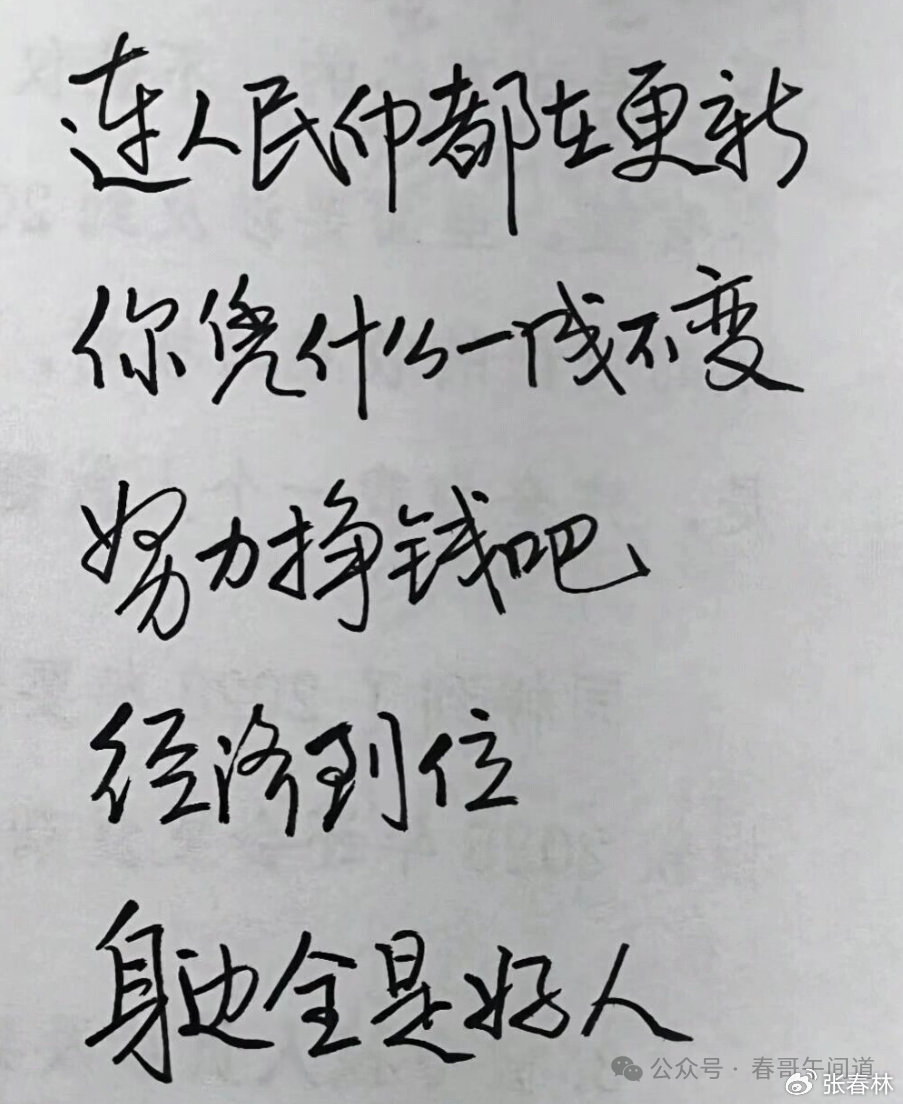 连人民币都在更新
你凭什么一成不变
努力挣钱吧
经济到位
身边全是好人
公众号 · 春哥午间道
张春林